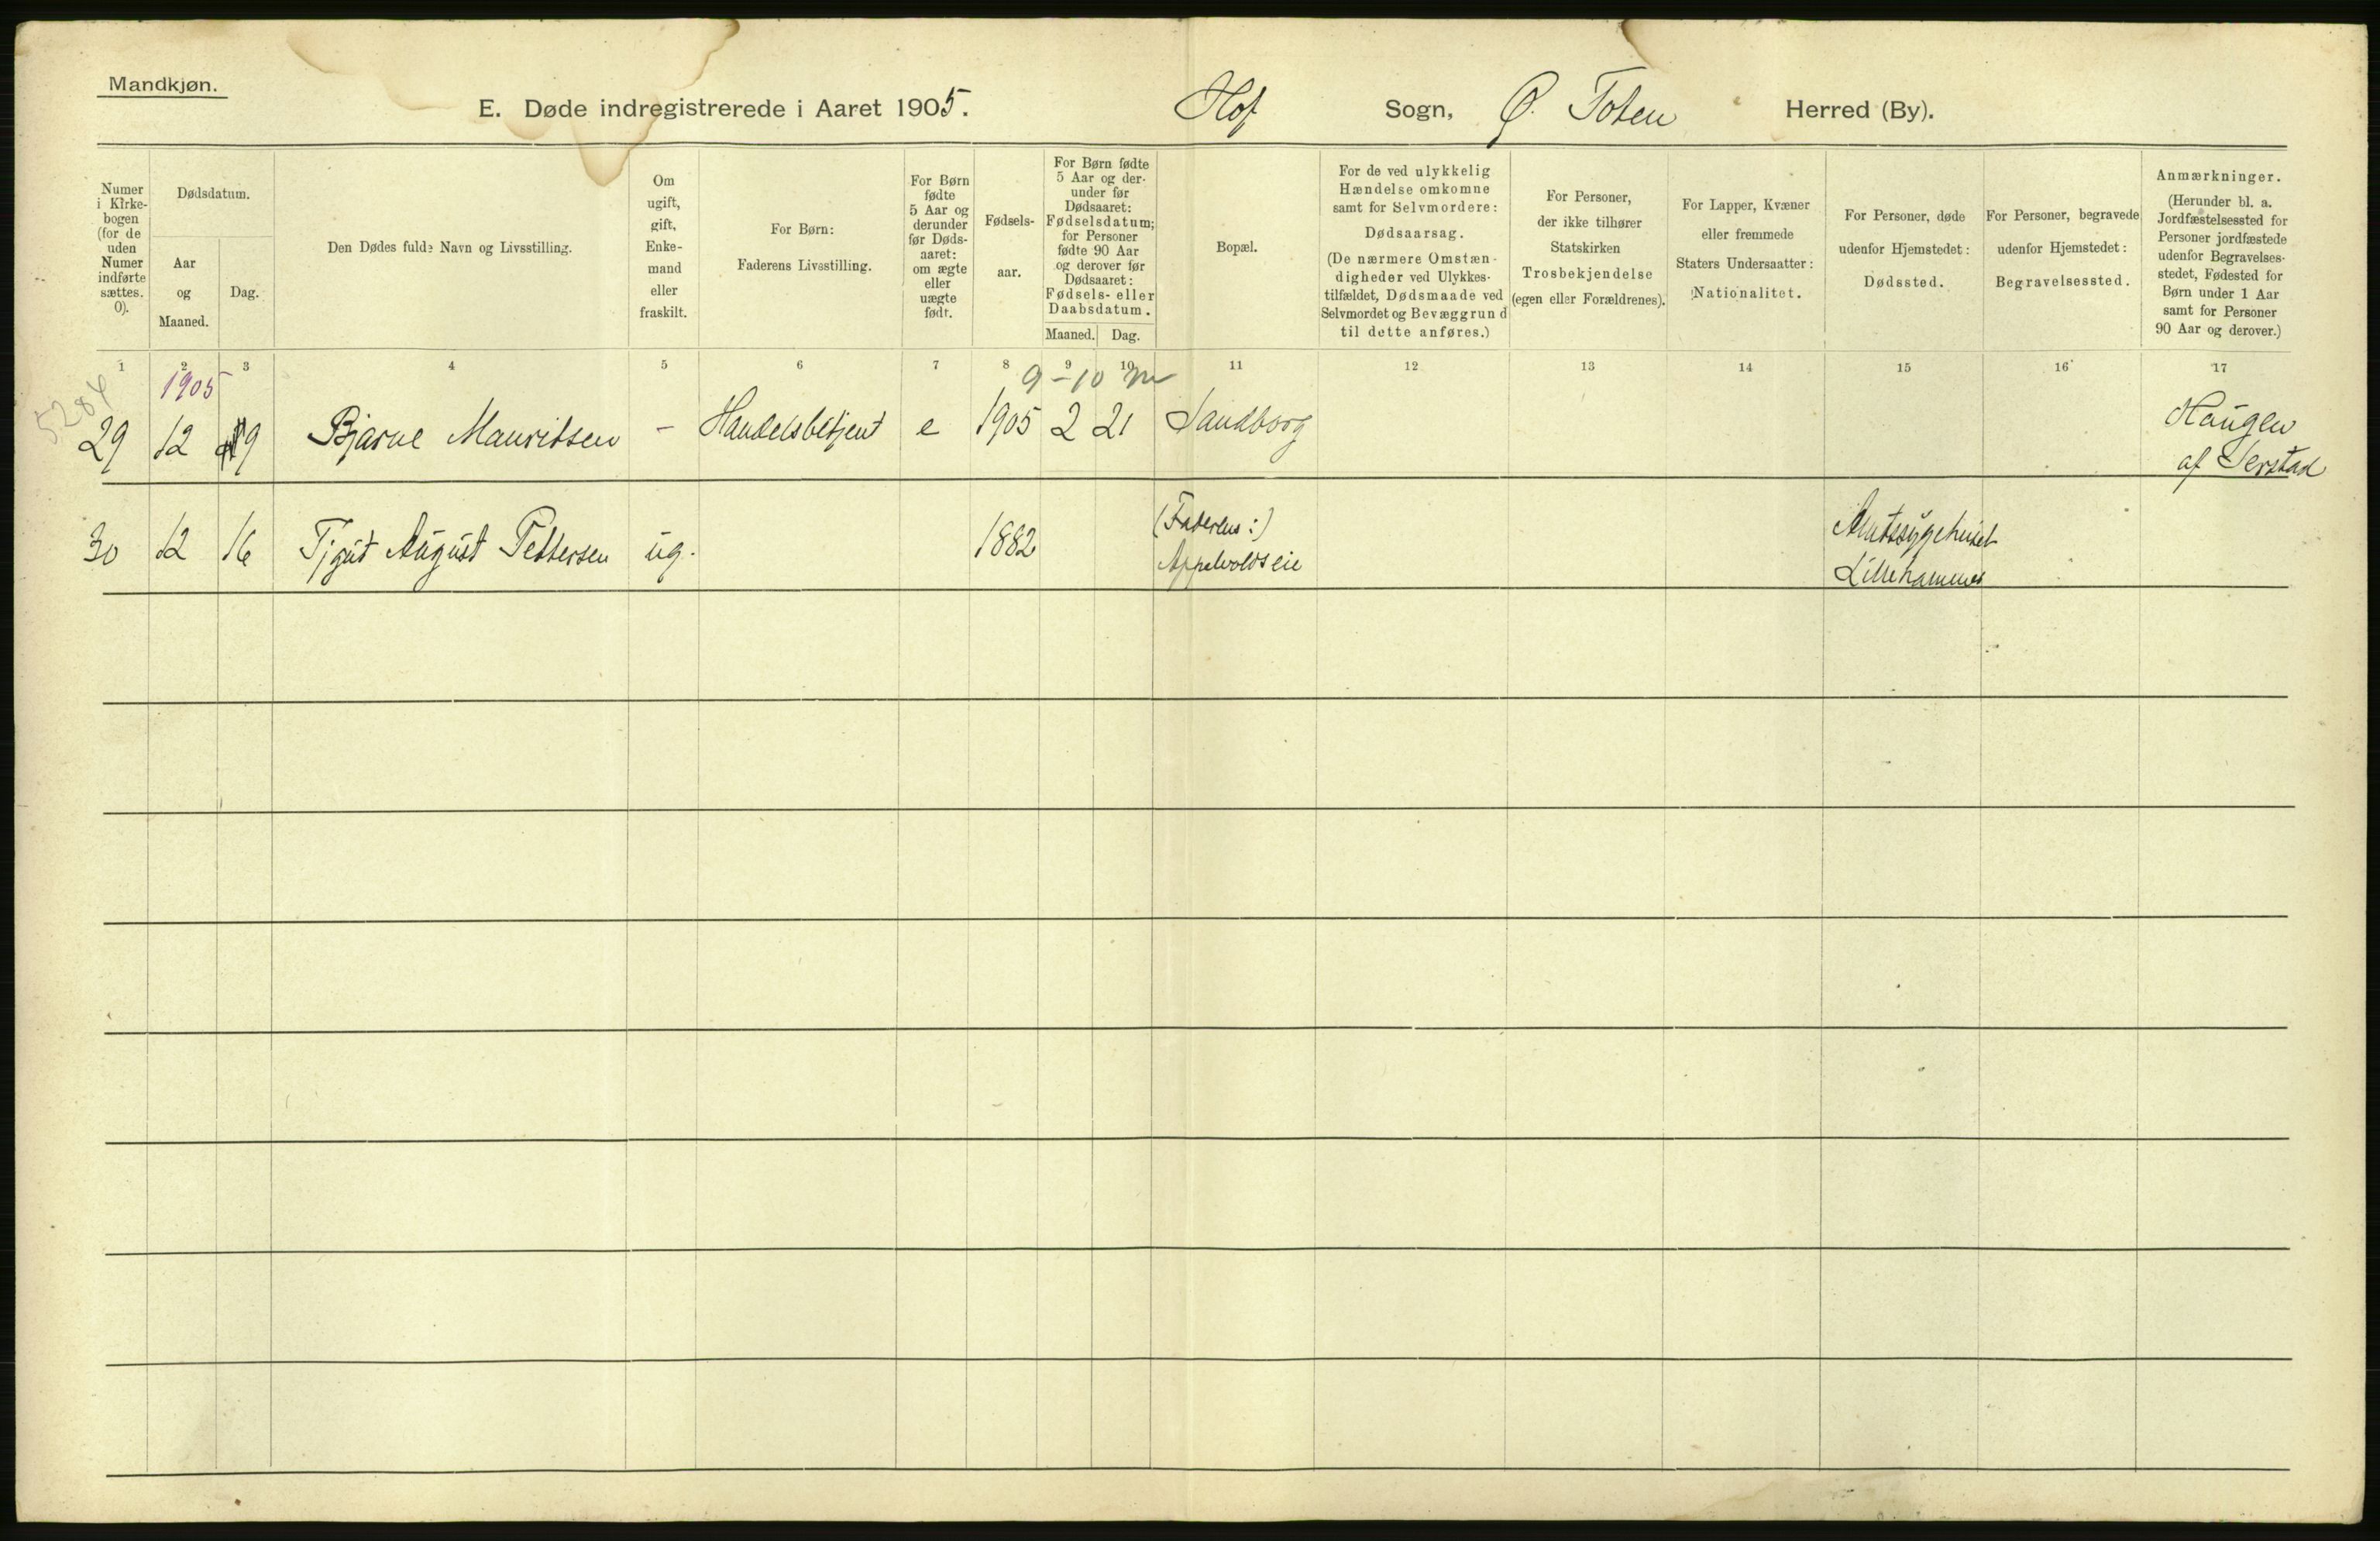 Mandkjøn.
E. Døde indregistrerede i Aaret 1905. Hof Sogn, Ø. Toten Herred (By).
Numer i Kirke-bogen (for de uden Numer indførte sættes. 0).
Dødsdatum.
Aar og Maaned.
Dag.
Den Dødes fulde Navn og Livsstilling.
Om ugift, gift, Enke-mand eller fraskilt.
For Børn: Faderens Livsstilling.
For Børn fødte 5 Aar og derunder før Døds-aaret: om ægte eller uægte født.
Fødsels-aar.
For Børn fødte 5 Aar og der-under før Dødsaaret: Fødselsdatum; for Personer fødte 90 Aar og derover før Dødsaaret: Fødsels- eller Daabsdatum.
Maaned. Dag.
Bopæl.
For de ved ulykkelig Hændelse omkomne samt for Selvmordere: Dødsaarsag. (De nærmere Omstæn-digheder ved Ulykkes-tilfældet, Dødsmaade ved Selvmordet og Bevæggrund til dette anføres.)
For Personer, der ikke tilhører Statskirken Trosbekjendelse (egen eller Forældrenes).
For Lapper, Kvæner eller fremmede Staters Undersaatter: Nationalitet.
For Personer, døde udenfor Hjemstedet: Dødssted.
For Personer, begravede udenfor Hjemstedet: Begravelsessted.
Anmærkninger. (Herunder bl. a. Jordfæstelsessted for Personer jordfæstede udenfor Begravelses-stedet, Fødested for Børn under 1 Aar samt for Personer 90 Aar og derover.)
1 2 3 4 5 6 7 8 9 10 11 12 13 14 15 16 17
5284 1905 9-10 m
29 12 19 Bjarne Mauritsen - Handelsbetjent e 1905 2 21 Sandborg Haugen
af Serstad
30 12 16 August Pettersen ug. 1882 Amtssygehuset
Lillehammer